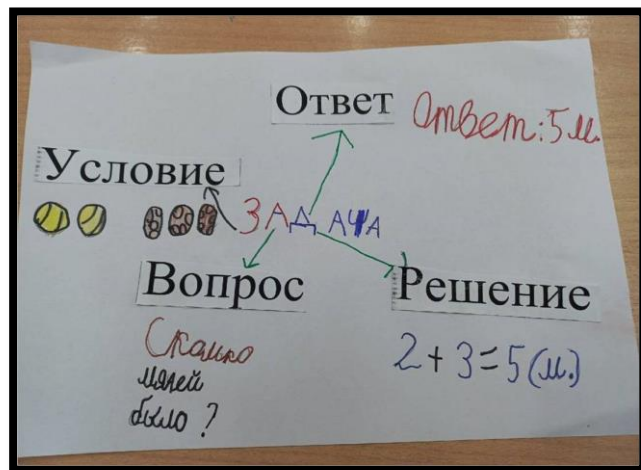 Ответ
Ответ: 5 м.
Условие
ЗАДАЧА
Вопрос
Решение
Сколко
мячей
было ?
2 + 3 = 5 (м.)